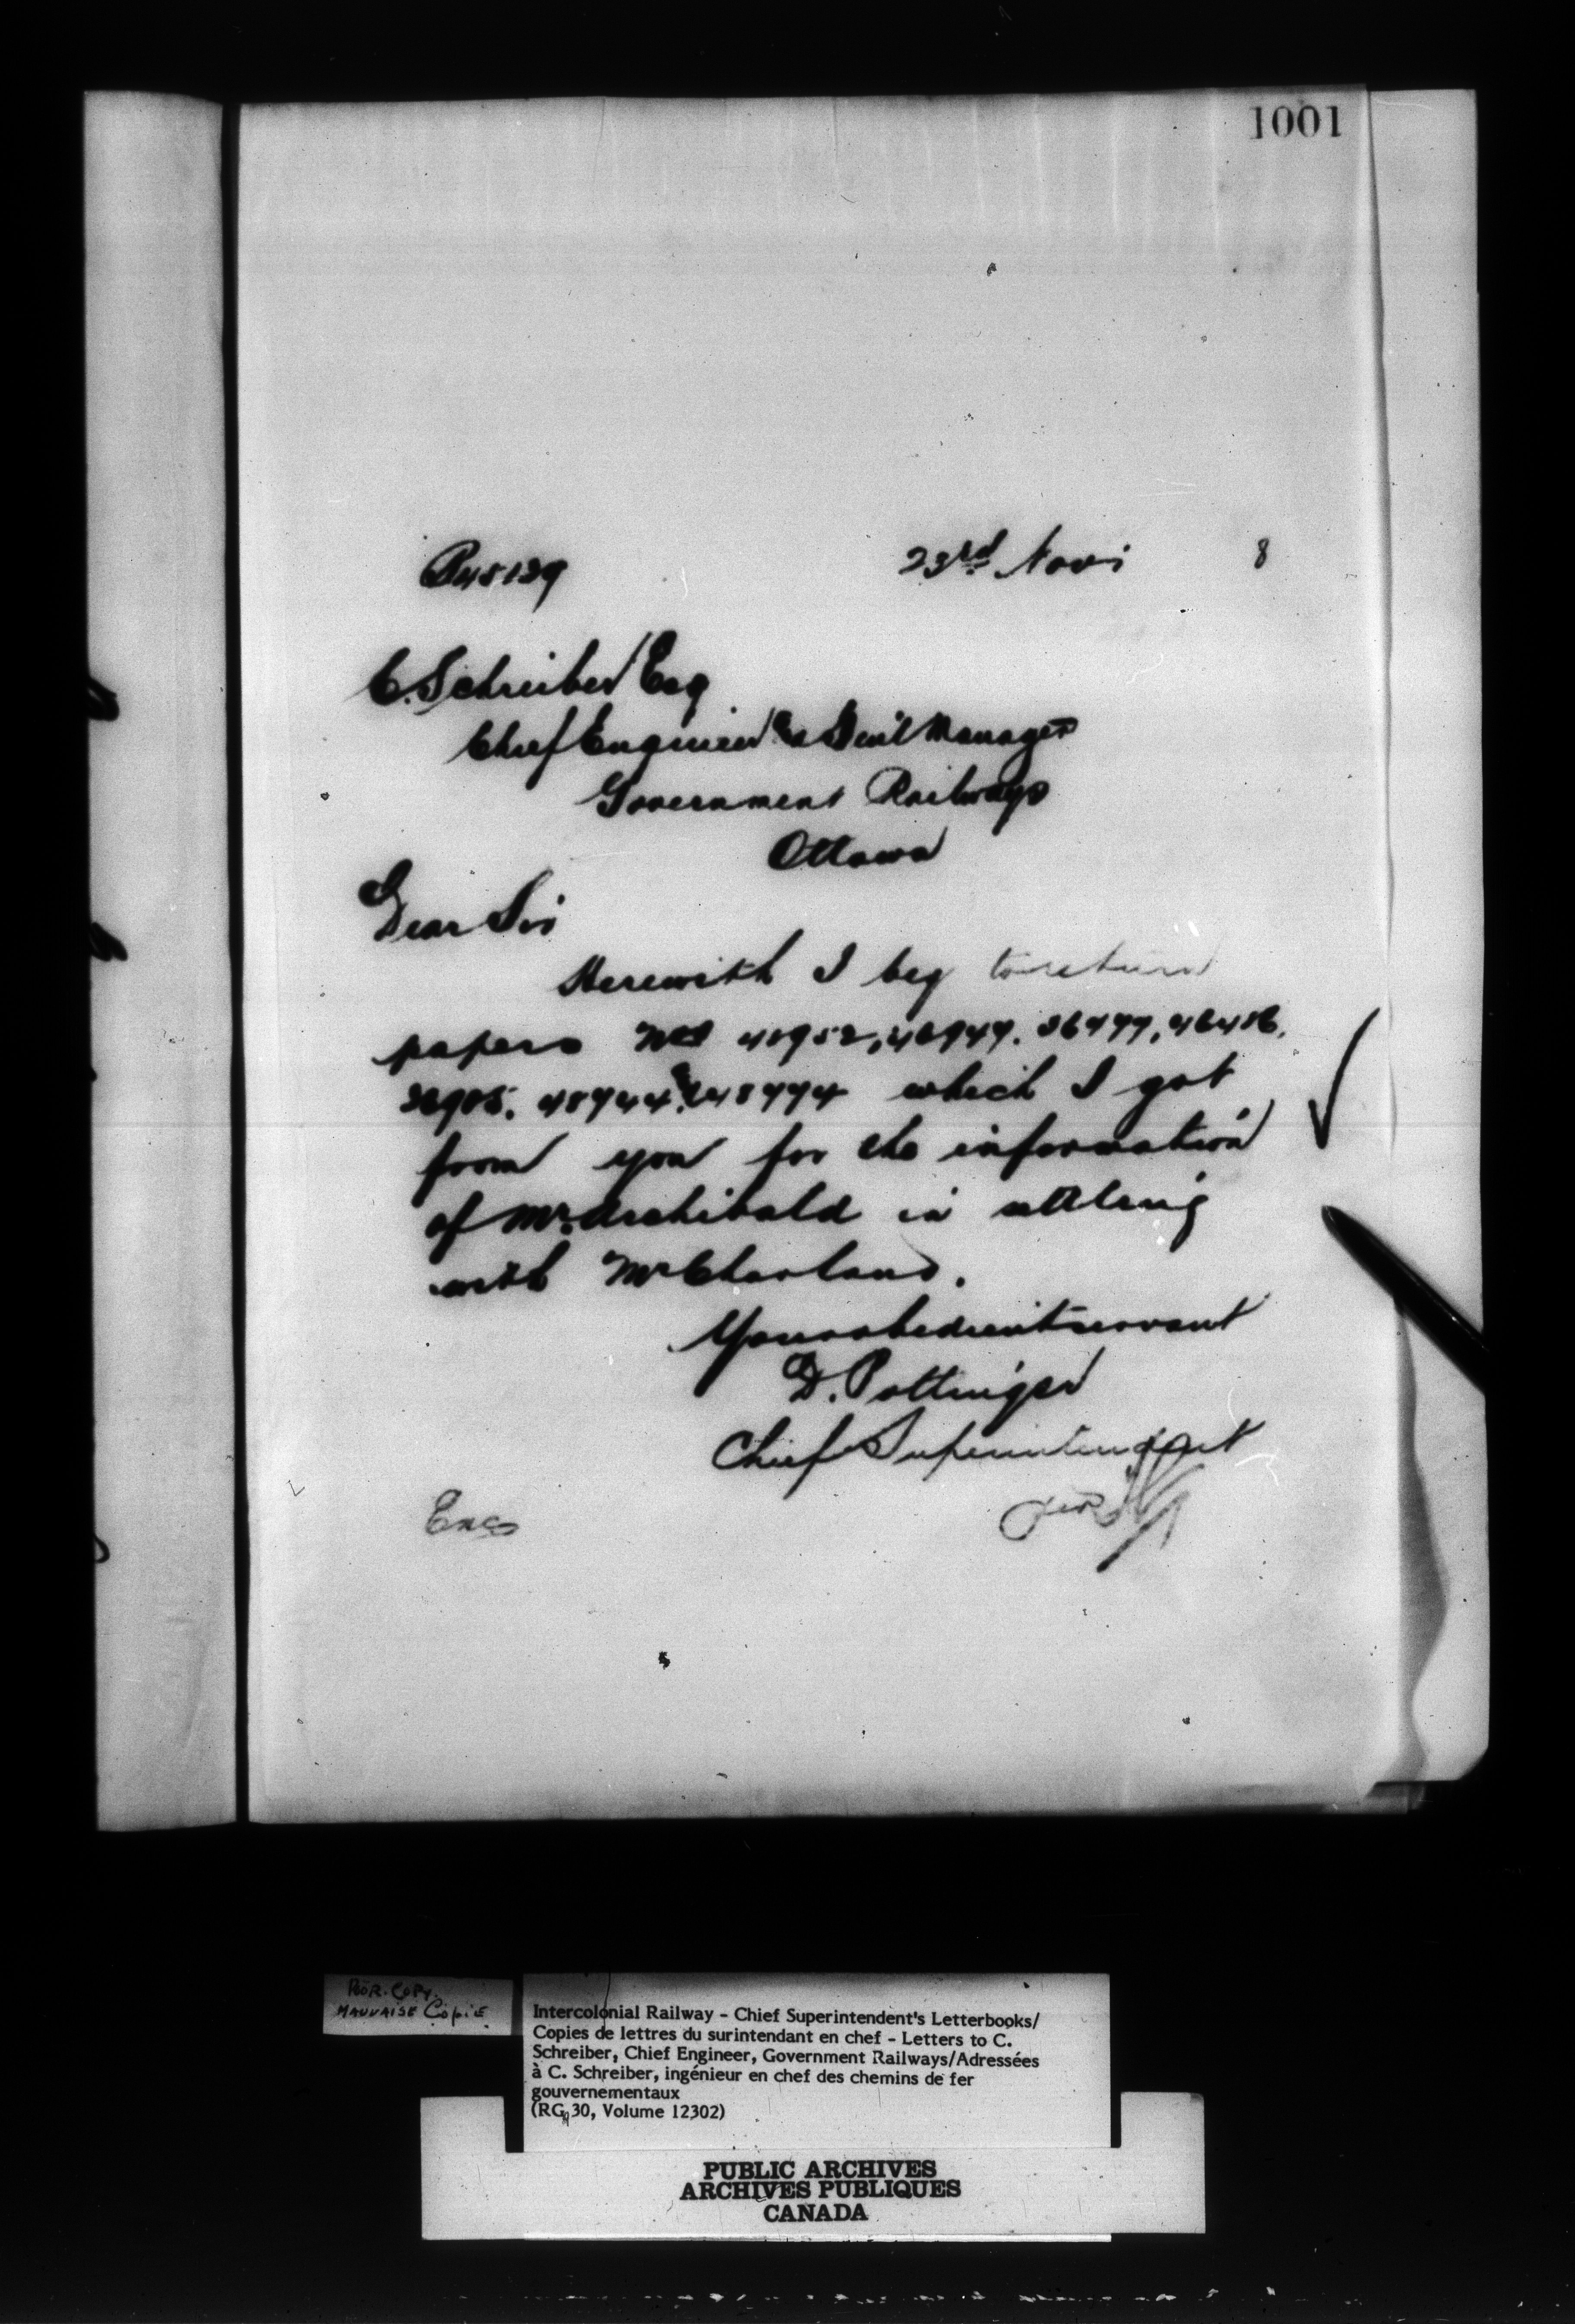 1001
P45139
23rd Nov 8
C. Schreiber Esq
Chief Engineer & Genl Manager
Government Railways
Ottawa
Dear Sir
Herewith I beg to return
papers Nos
which I got
from you for the information
of Mr. Archibald in settling
with Mr Charland.
Your obedient servant
D. Pottinger
Chief Superintendent
per
Encs
POOR COPY.
MAUVAISE COPIE
Intercolonial Railway - Chief Superintendent's Letterbooks/
Copies de lettres du surintendant en chef - Letters to C.
Schreiber, Chief Engineer, Government Railways/Adressées
à C. Schreiber, ingénieur en chef des chemins de fer
gouvernementaux
(RG 30, Volume 12302)
PUBLIC ARCHIVES
ARCHIVES PUBLIQUES
CANADA